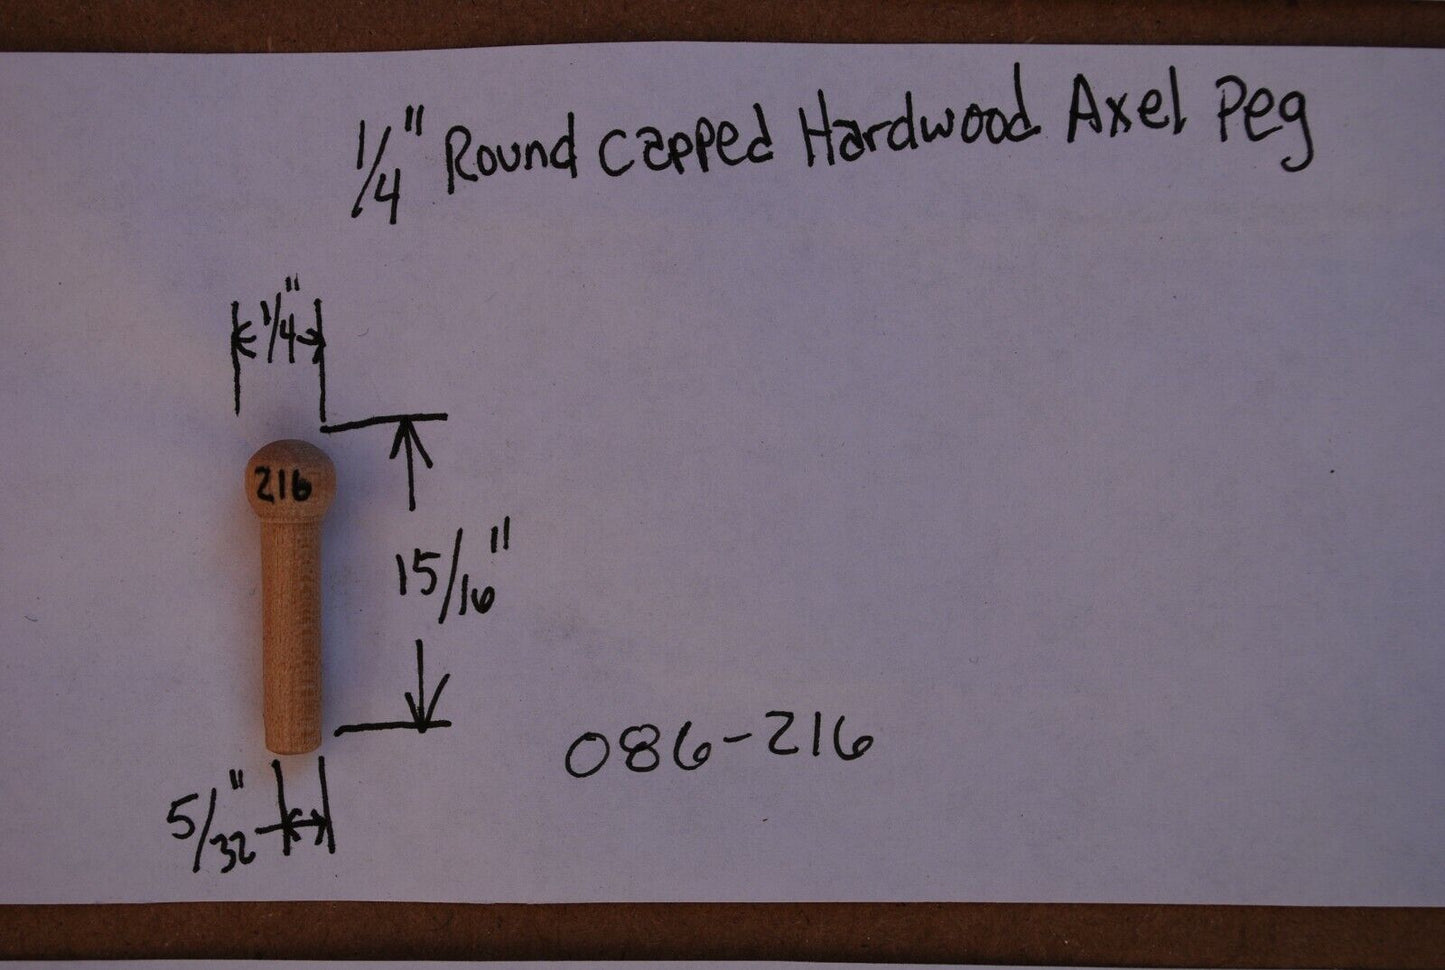 1/4" Round Capped Hardwood Axel Peg
1/4"
216
15/16"
086-216
5/32"